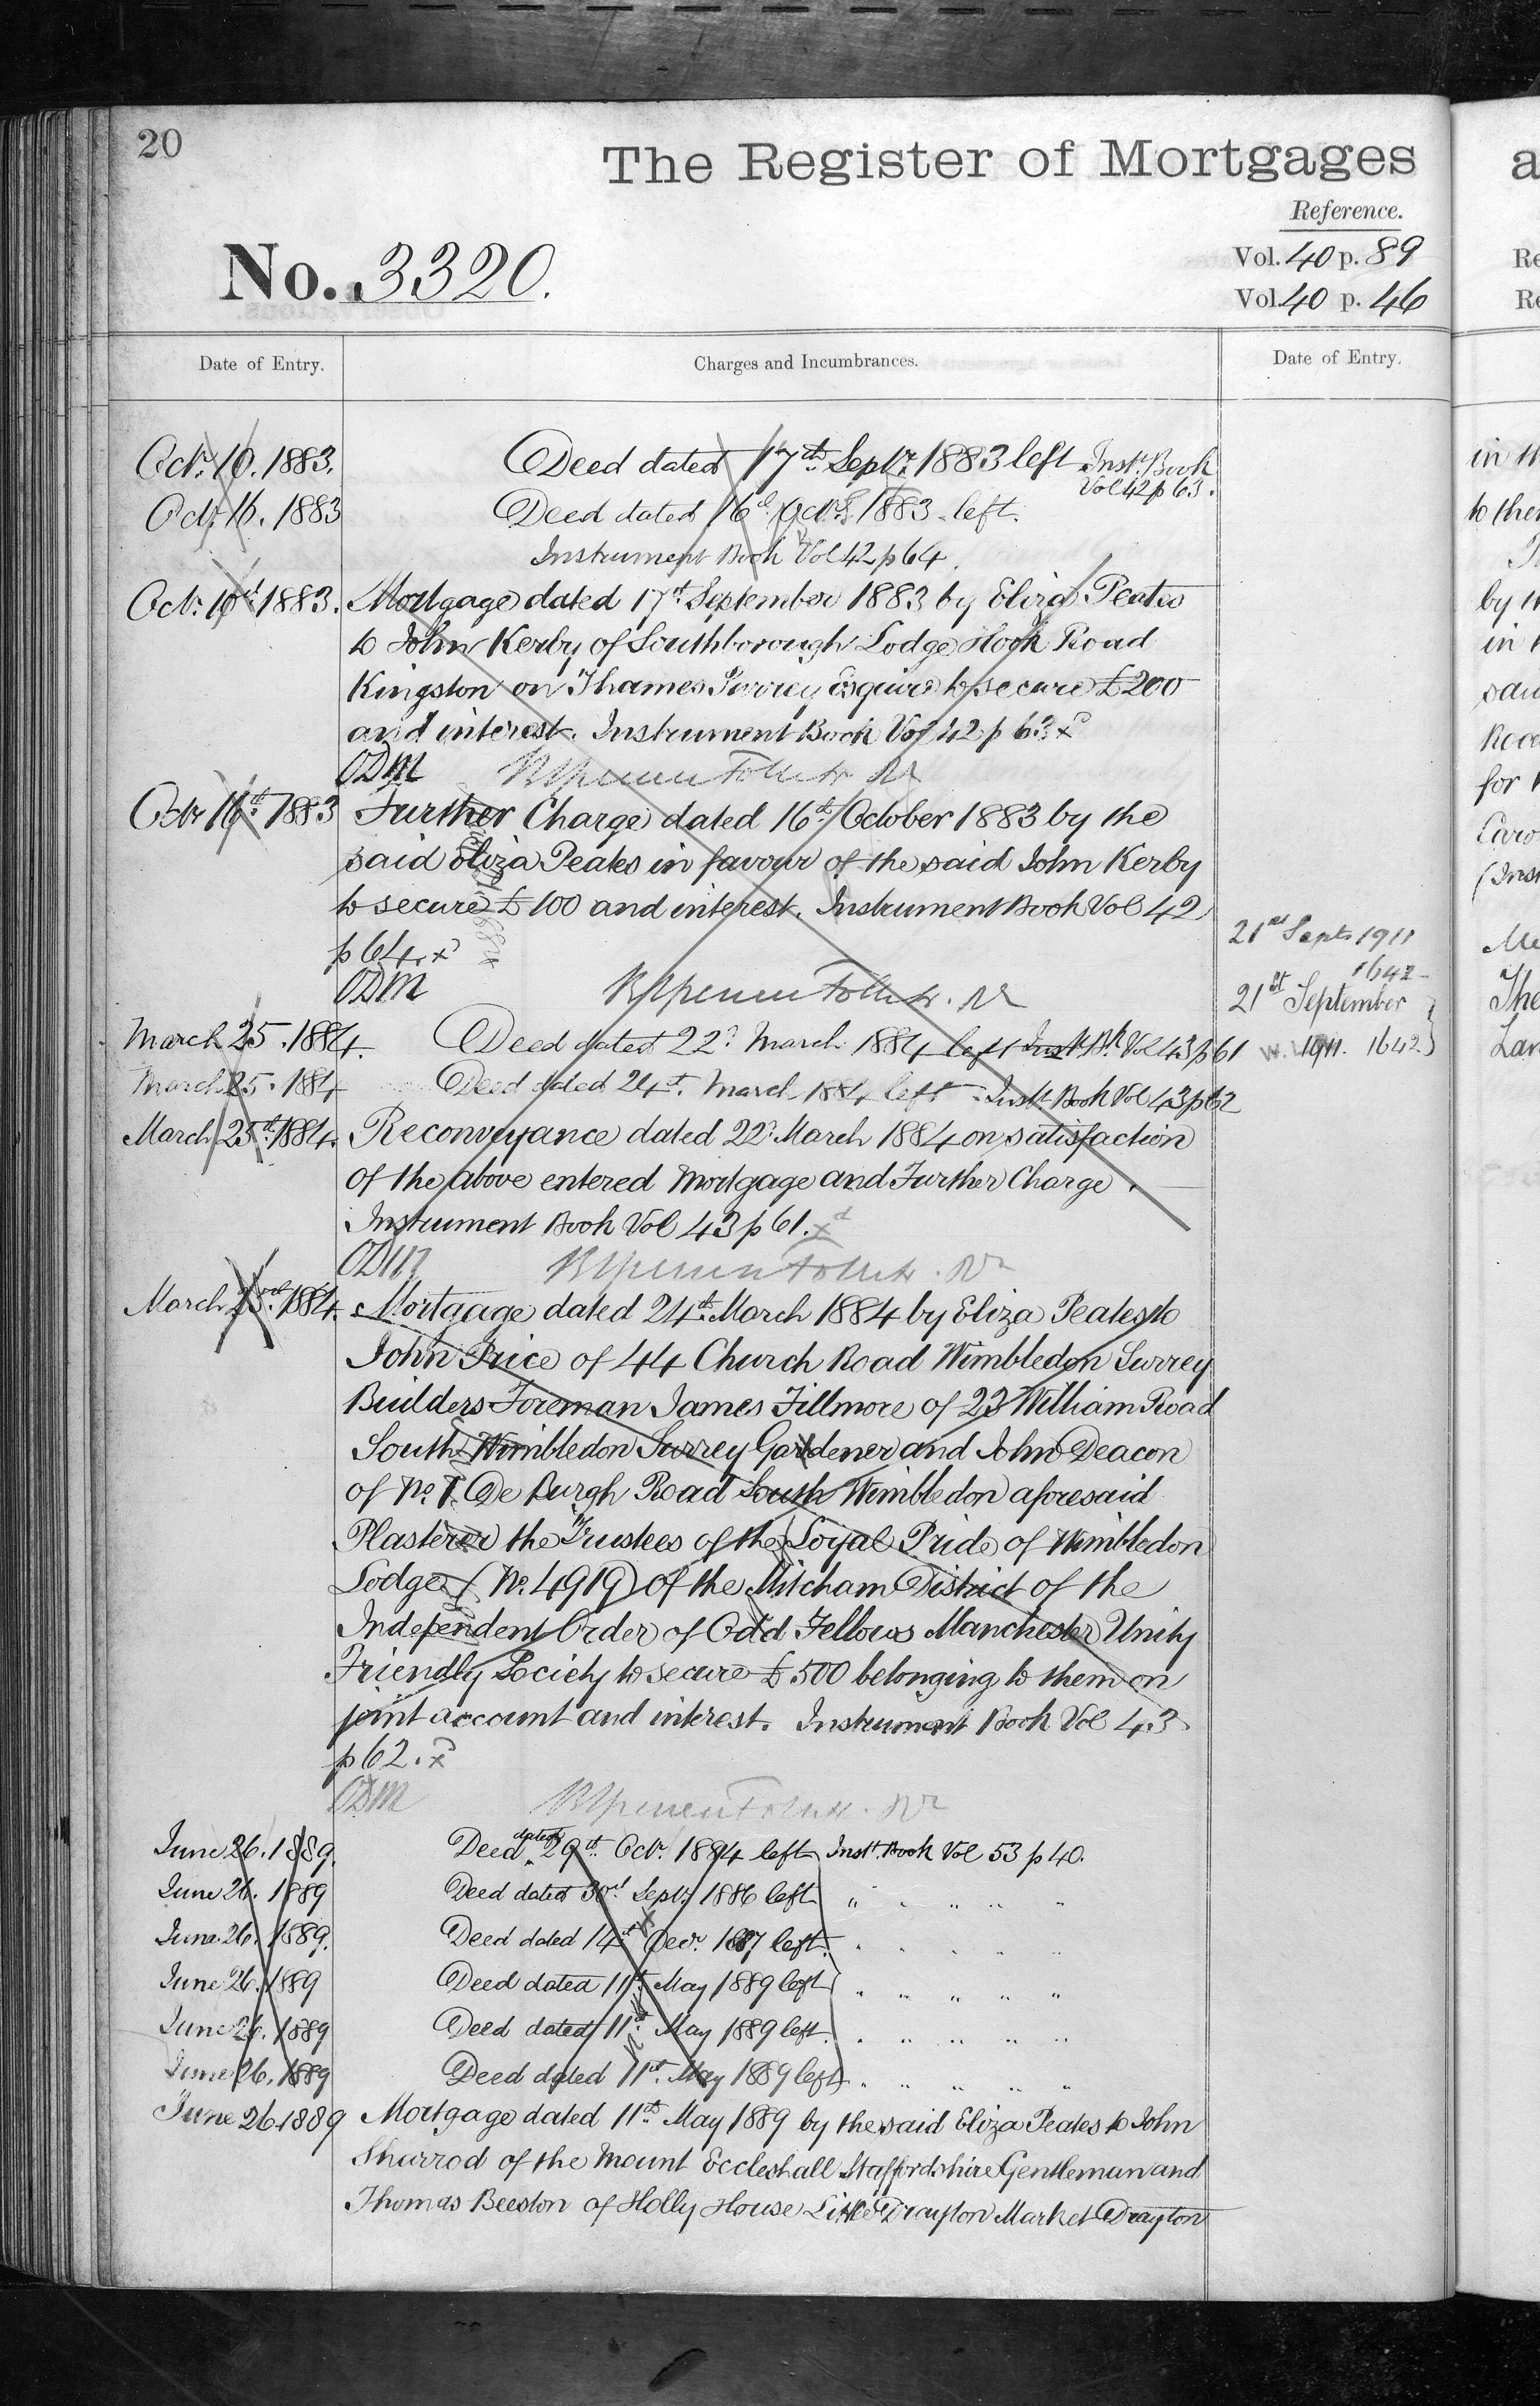 20
The Register of Mortgages
Reference.
No. 3320.
Vol. 40 p. 89
Vol. 40 p. 46
Date of Entry.
Charges and Incumbrances.
Date of Entry.
Octr. 10. 1883. Deed dated 17th Septr. 1883 left Inst. Book
Vol 42 p 63.
Octr. 16. 1883 Deed dated 16th Octr. 1883 left.
Instrument Book Vol 42 p 64.
Octr. 10th 1883. Mortgage dated 17th September 1883 by Eliza Peates
to John Kerby of Southborough Lodge Hook Road
Kingston on Thames Surrey Esquire to secure £200
and interest. Instrument Book Vol 42 p 63 xd
ODM
Octr 16th 1883 Further Charge dated 16th October 1883 by the
said Eliza Peates in favour of the said John Kerby
to secure £100 and interest. Instrument Book Vol 42
p 64. xd
ODM
21st Sept. 1911
1642
21st September
1911. 1642
March 25. 1884. Deed dated 22d March 1884 left Inst. Bk Vol 43 p 61
March 25. 1884 Deed dated 24th March 1884 left Inst. Book Vol 43 p 62
March 25th 1884. Reconveyance dated 22d March 1884 on satisfaction
of the above entered Mortgage and Further Charge.
Instrument Book Vol 43 p 61. xd
ODM
March 25th 1884. Mortgage dated 24th March 1884 by Eliza Peates to
John Price of 44 Church Road Wimbledon Surrey
Builders Foreman James Fillmore of 23 William Road
South Wimbledon Surrey Gardener and John Deacon
of No. 1 De Burgh Road South Wimbledon aforesaid
Plasterer the Trustees of the Loyal Pride of Wimbledon
Lodge (No. 4919) of the Mitcham District of the
Independent Order of Odd Fellows Manchester Unity
Friendly Society to secure £500 belonging to them on
joint account and interest. Instrument Book Vol 43
p 62. xd
ODM
June 26. 1889. Deed dated 29th Octr. 1884 left Inst. Book Vol 53 p 40.
June 26. 1889 Deed dated 30th Septr 1886 left " " " " "
June 26. 1889. Deed dated 14th Decr. 1887 left " " " " "
June 26. 1889 Deed dated 11th May 1889 left " " " " "
June 26. 1889 Deed dated 11th May 1889 left " " " " "
June 26. 1889 Deed dated 11th May 1889 left " " " " "
June 26 1889 Mortgage dated 11th May 1889 by the said Eliza Peates to John
Sharrod of the Mount Eccleshall Staffordshire Gentleman and
Thomas Beeston of Holly House Little Drayton Market Drayton